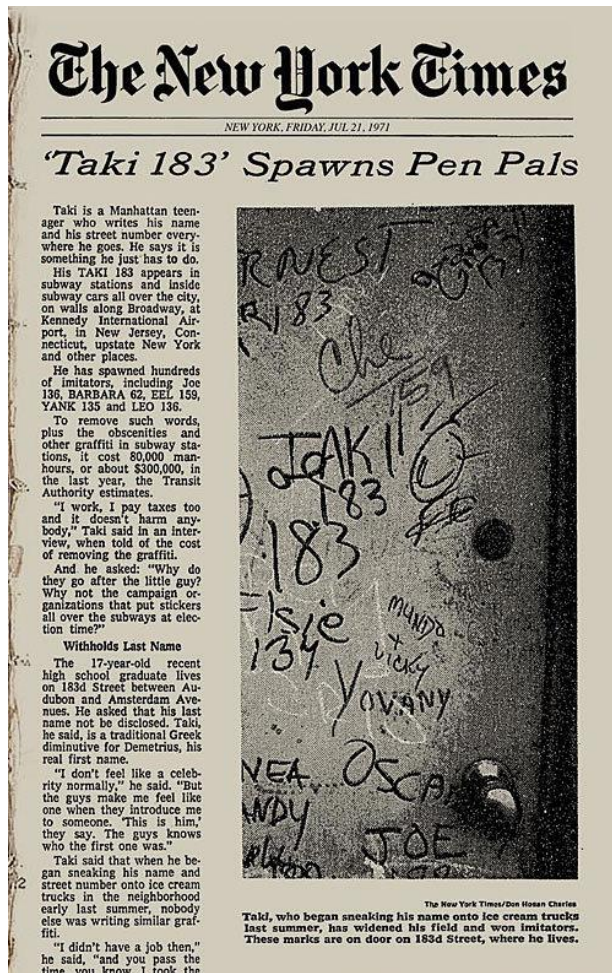 The New York Times
NEW YORK, FRIDAY, JUL 21, 1971
'Taki 183' Spawns Pen Pals
Taki is a Manhattan teen-
ager who writes his name
and his street number every-
where he goes. He says it is
something he just has to do.
His TAKI 183 appears in
subway stations and inside
subway cars all over the city,
on walls along Broadway, at
Kennedy International Air-
port, in New Jersey, Con-
necticut, upstate New York
and other places.
He has spawned hundreds
of imitators, including Joe
136, BARBARA 62, EEL 159,
YANK 135 and LEO 136.
To remove such words,
plus the obscenities and
other graffiti in subway sta-
tions, it cost 80,000 man-
hours, or about $300,000, in
the last year, the Transit
Authority estimates.
"I work, I pay taxes too
and it doesn't harm any-
body," Taki said in an inter-
view, when told of the cost
of removing the graffiti.
And he asked: "Why do
they go after the little guy?
Why not the campaign or-
ganizations that put stickers
all over the subways at elec-
tion time?"
Withholds Last Name
The 17-year-old recent
high school graduate lives
on 183d Street between Au-
dubon and Amsterdam Ave-
nues. He asked that his last
name not be disclosed. Taki,
he said, is a traditional Greek
diminutive for Demetrius, his
real first name.
"I don't feel like a celeb-
rity normally," he said. "But
the guys make me feel like
one when they introduce me
to someone. 'This is him,'
they say. The guys knows
who the first one was."
Taki said that when he be-
gan sneaking his name and
street number onto ice cream
trucks in the neighborhood
early last summer, nobody
else was writing similar graf-
fiti.
"I didn't have a job then,"
he said, "and you pass the
time, you know. I took the
RNEST
R 183
Che
159
TAKI
183
183
Elsie
134
MUNDO
+
VICKY
YOVANY
NEA
OSCAR
ANDY
JOE
The New York Times/Don Hogan Charles
Taki, who began sneaking his name onto ice cream trucks
last summer, has widened his field and won imitators.
These marks are on door on 183d Street, where he lives.